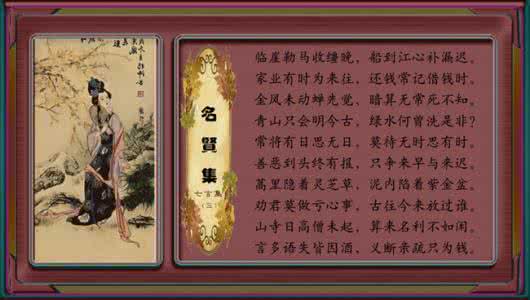 名
賢
集
七言集
（三）
临崖勒马收缰晚，船到江心补漏迟。
家业有时为来往，还钱常记借钱时。
金风未动蝉先觉，暗算无常死不知。
青山只会明今古，绿水何曾洗是非？
常将有日思无日，莫待无时思有时。
善恶到头终有报，只争来早与来迟。
蒿里隐着灵芝草，泥内陷着紫金盆。
劝君莫做亏心事，古往今来放过谁。
山寺日高僧未起，算来名利不如闲。
言多语失皆因酒，义断亲疏只为钱。